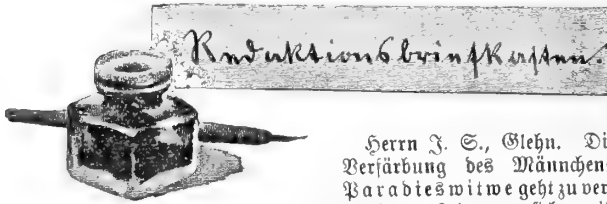 Redaktionsbriefkasten.
Herrn J. S., Glehn. Di
Verfärbung des Männchen
Paradieswitwe geht zu ver